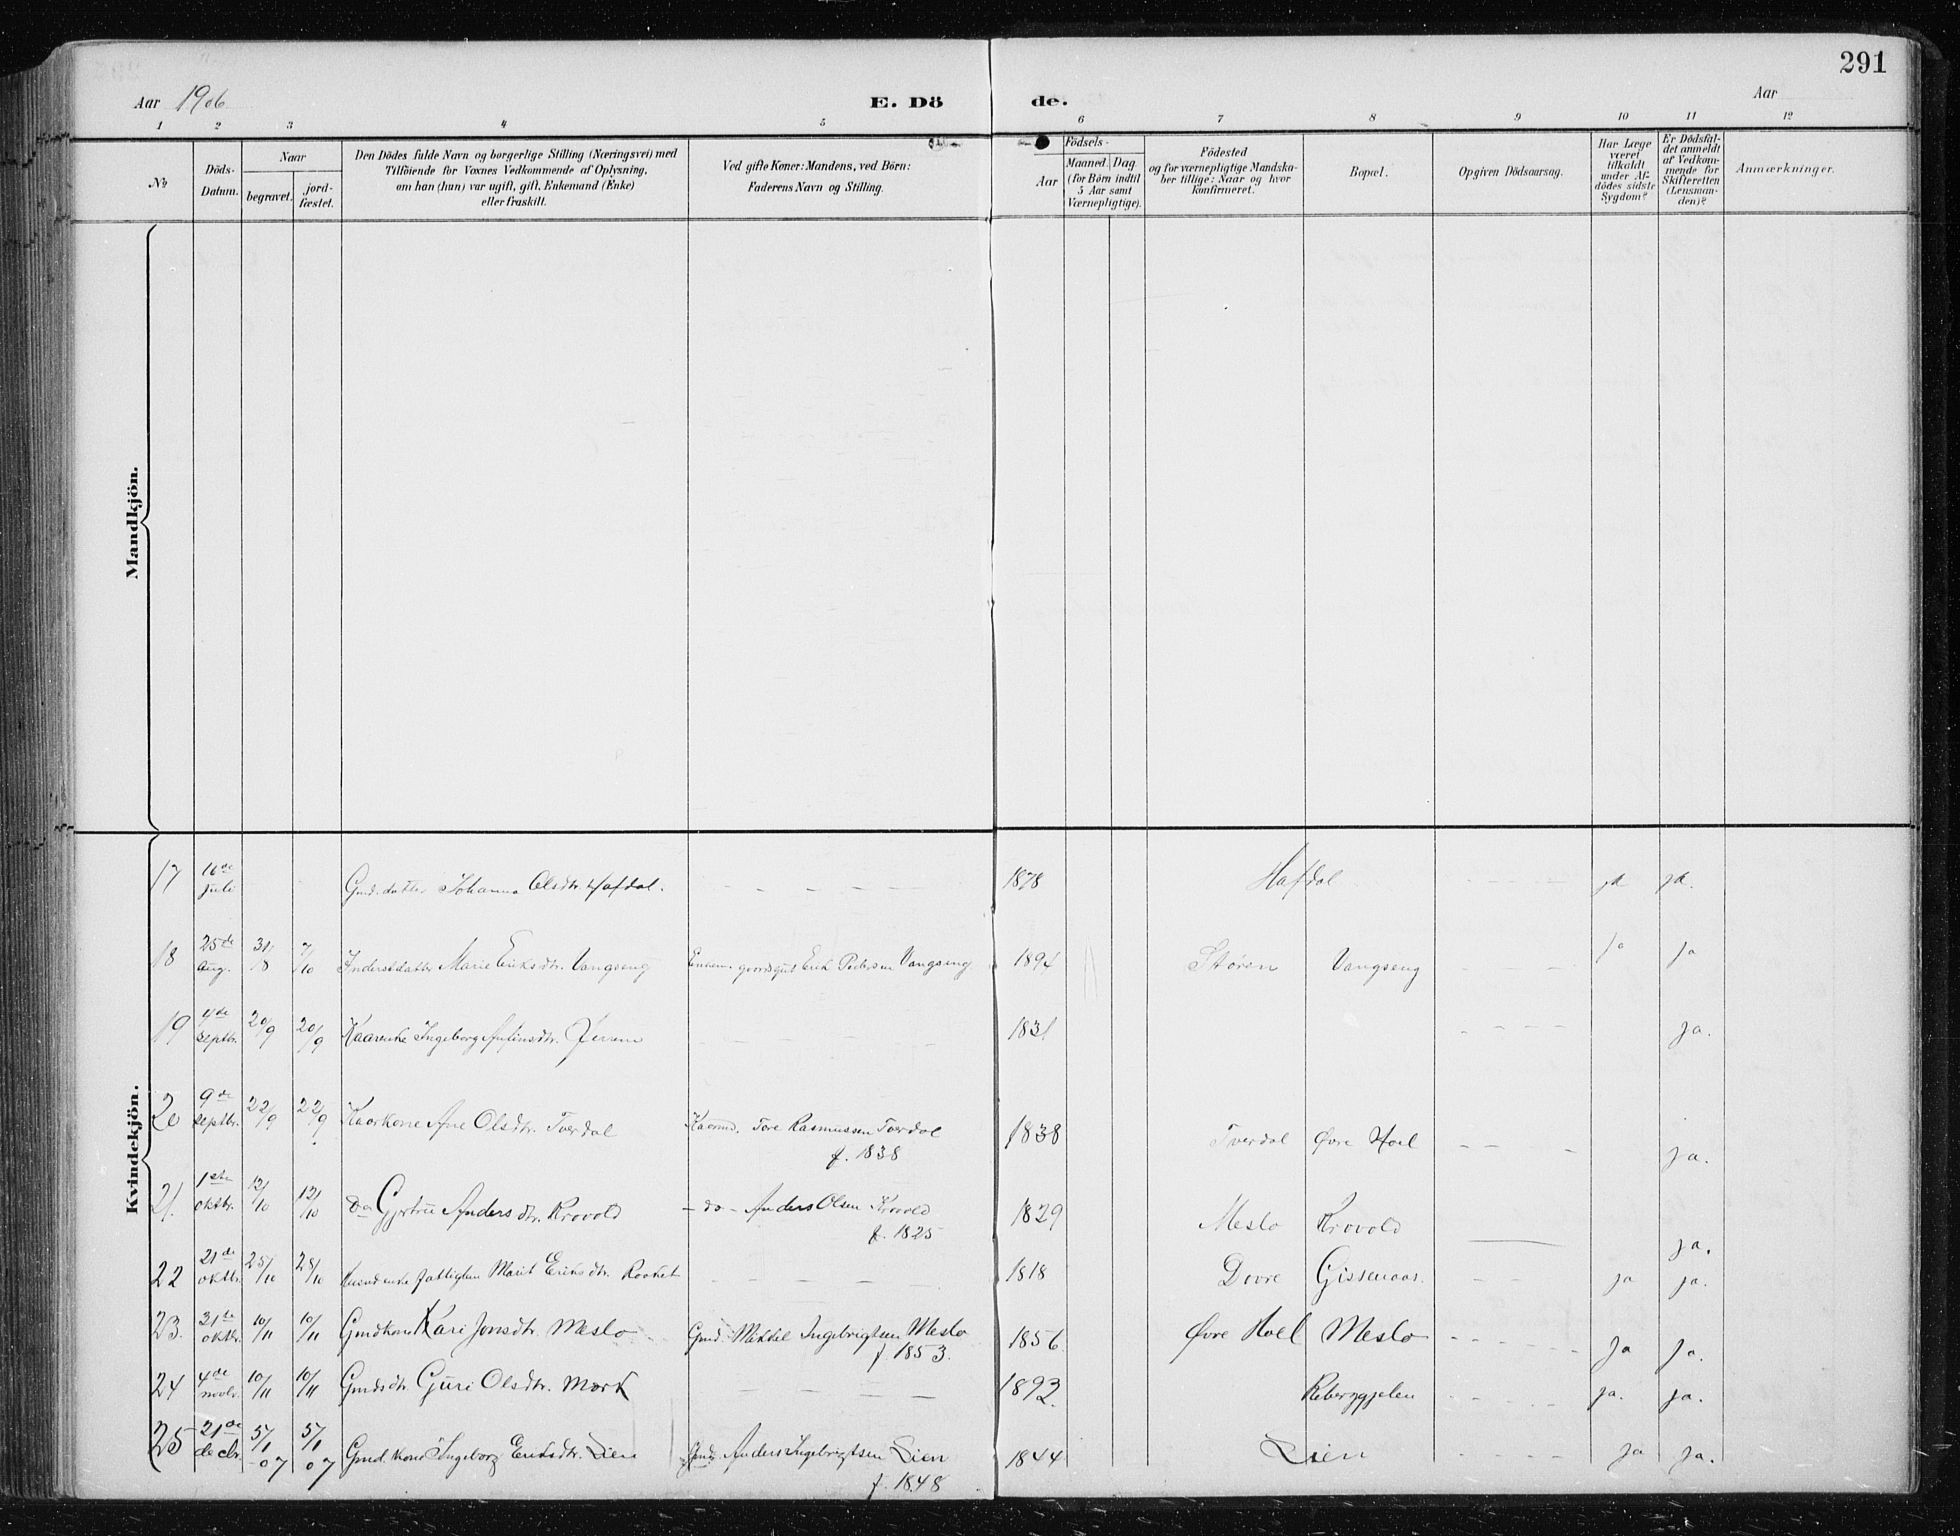 291
Aar 1906
E. Dö
de.
Aar
1 2 3 4 5 6 7 8 9 10 11 12
№
Döds-
Datum.
Naar
begravet.
jord-
fæstet.
Den Dödes fulde Navn og borgerlige Stilling (Næringsvei) med
Tilföiende for Voxnes Vedkommende af Oplysning,
om han (hun) var ugift, gift, Enkemand (Enke)
eller fraskilt.
Ved gifte Koner: Mandens, ved Börn:
Faderens Navn og Stilling.
Födsels-
Aar
Maaned. Dag.
(for Börn indtil
5 Aar samt
Værnepligtige).
Födested
og for værnepligtige Mandska-
ber tillige: Naar og hvor
konfirmeret.
Bopæl.
Opgiven Dödsaarsag.
Har Læge
været
tilkaldt
under Af-
dödes sidste
Sygdom?
Er Dödsfal-
det anmeldt
af Vedkom-
mende for
Skifteretten
(Lensman-
den)?
Anmærkninger.
Mandkjön.
Kvindekjön.
17 16de Juli Gmd. datter Johanna Olsdtr. Hafdal. - - - - - 1878 Hafdal - - - - ja ja.
18 25de Aug. 31/8 7/10 Inderstdatter Marie Eriksdtr. Vangseng gaardsgut Erik Pedersen Vangseng 1894 Støren Vangseng - - - ja ja
19 4de septbr. 20/9 20/9 Kaarenke Ingeborg Anfinsdtr. - - - - - 1831 - - - - ja.
20 9de septbr. 22/9 22/9 Kaarkone Ane Olsdtr. Tverdal Kaarmd. Tore Rasmussen Tverdal f. 1838 1838 Tverdal Øvre Hoel - - - ja.
21. 1ste oktbr. 12/10 12/10 Do Gjertru Andersdtr. Krovold - do - Anders Olsen Krovold f. 1825 1829 Meslo Krovold ja.
22 21de oktbr. 25/10 25/10 Marit Eriksdtr. - - - - - 1818 Dovre Gissenaas. - - ja ja.
23. 31te oktbr. 10/11 10/11 Gmdkone Kari Jonsdtr. Meslo Gmd. Mikkel Ingebrigtsen Meslo f. 1853. 1856. Øvre Hoel Meslo - - - - ja ja.
24 4de novbr. 10/11 10/11 Gmdsdtr. Guri Olsdtr. Mærk - - - - 1893. - - - - ja. ja.
25 21de decbr. 5/1 -07 5/1 07 Gmd. kone Ingeborg Eriksdtr. Lien Gmd. Anders Ingebrigtsen Lien f. 1848 1844 Lien - - - - ja ja.